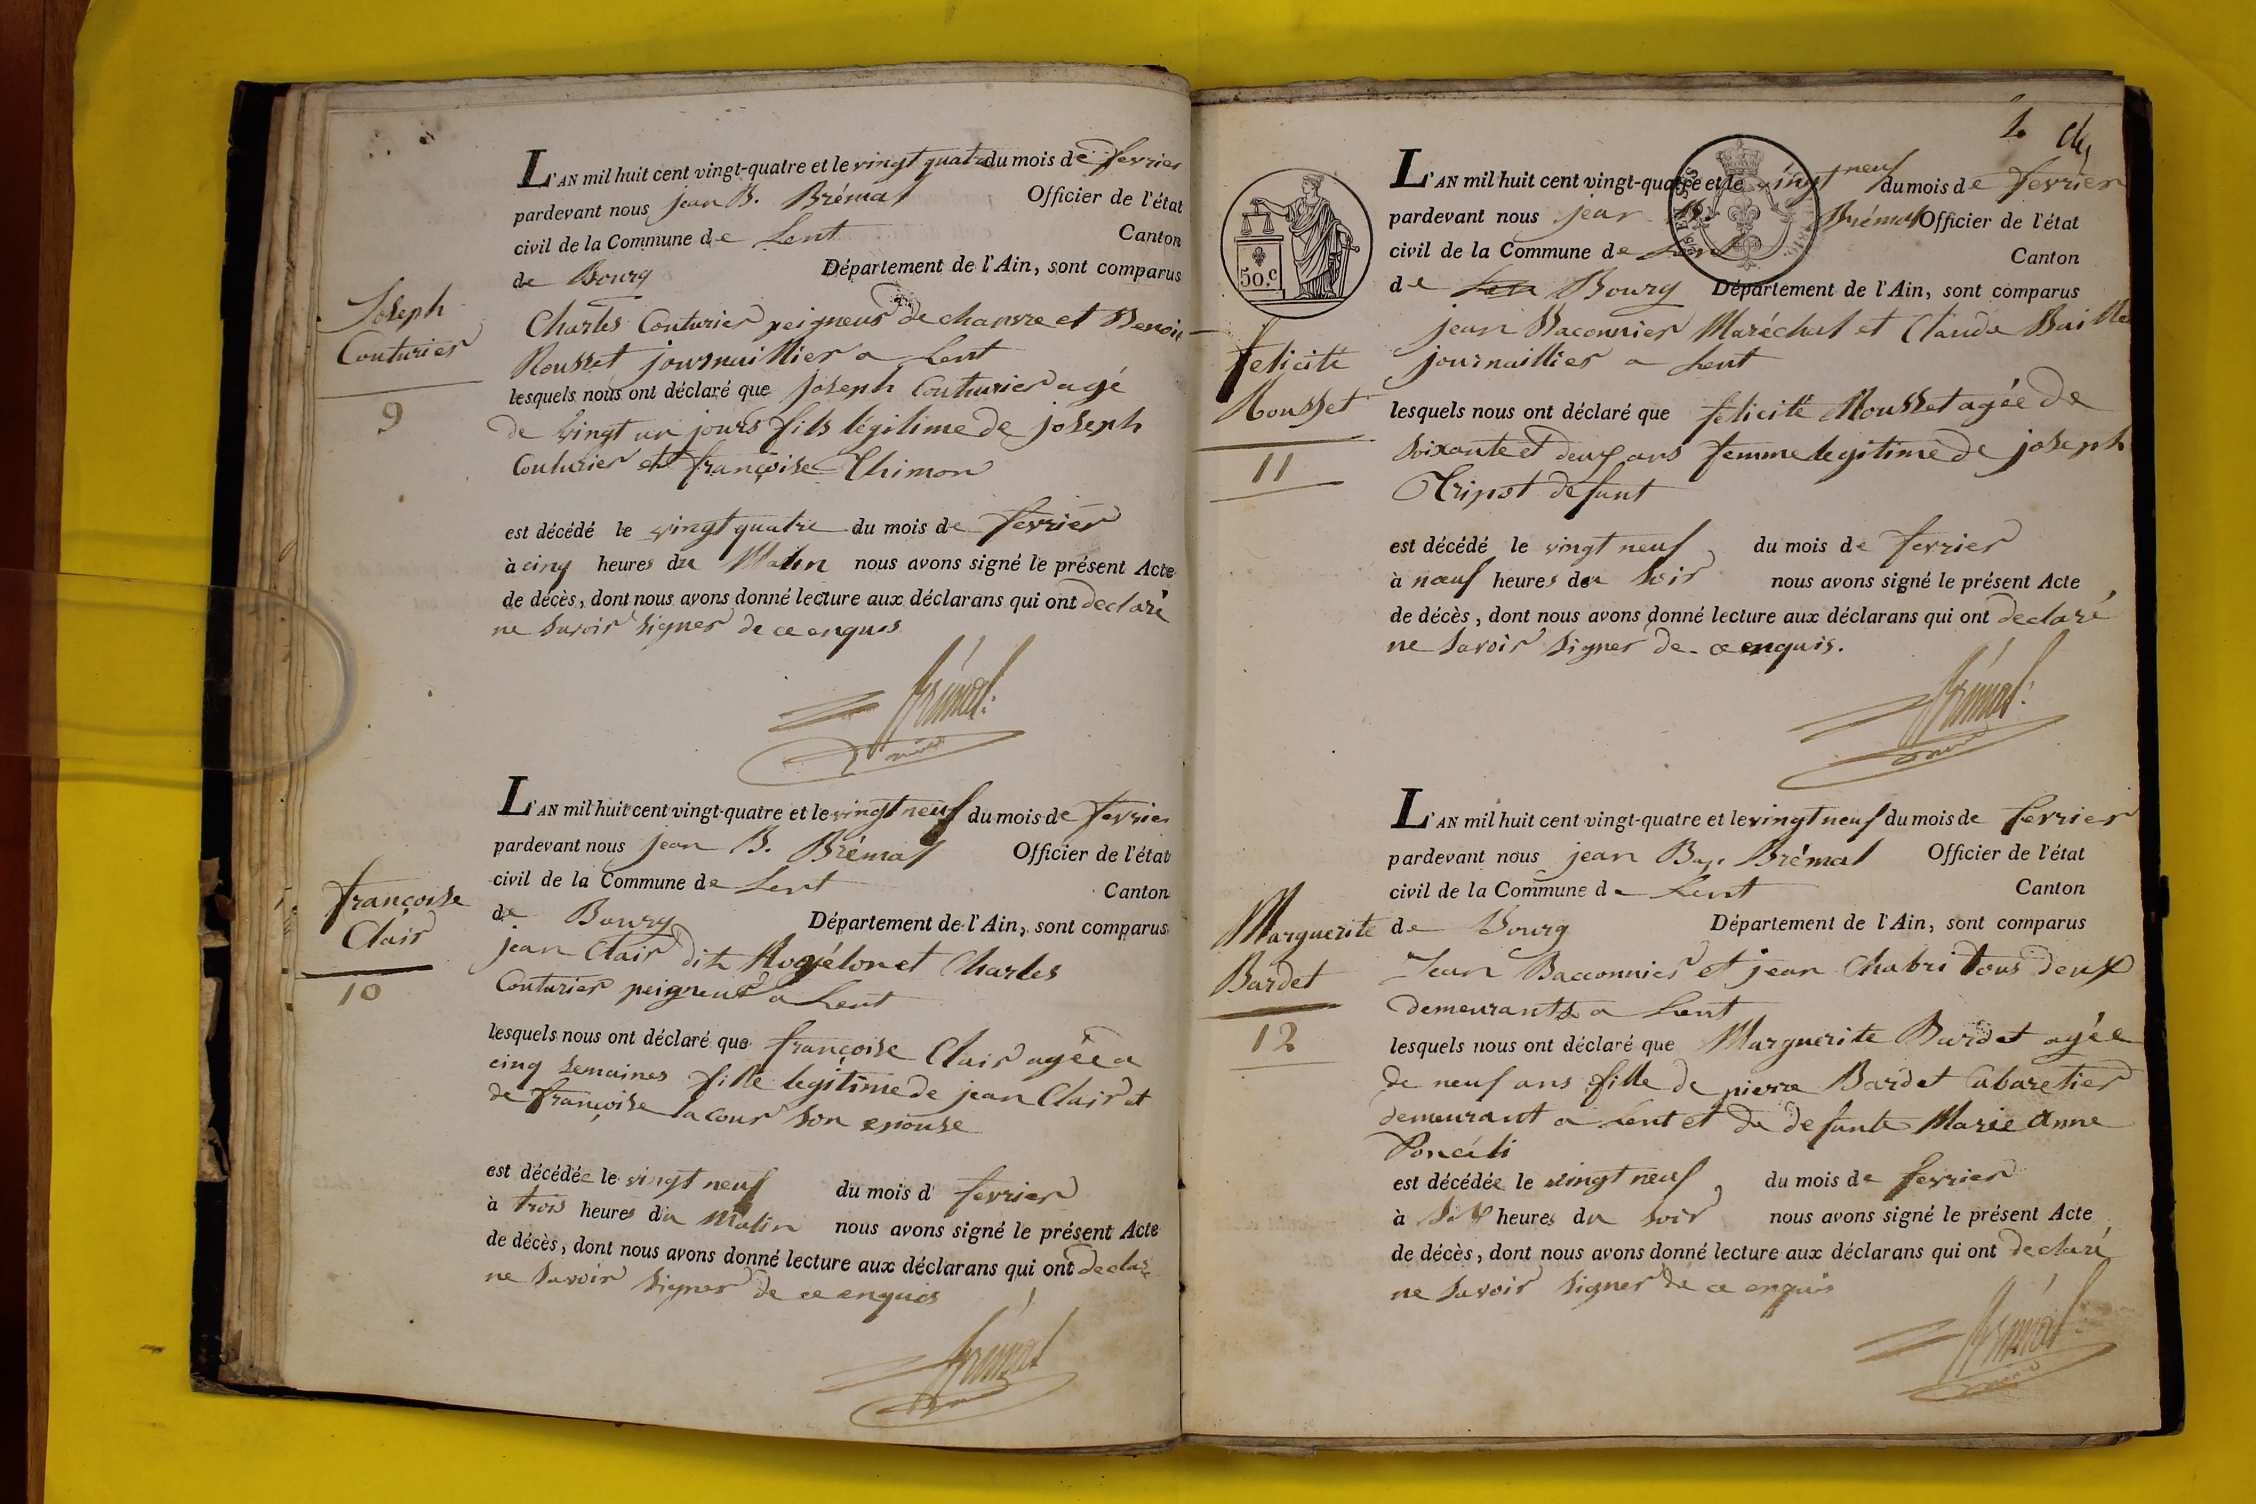 L'AN mil huit cent vingt-quatre et le vingt quatre du mois de fevrier
pardevant nous jean B. Brémal Officier de l'état
civil de la Commune de Lent Canton
de Bourg Département de l'Ain, sont comparus
Joseph
Couturier
9
Charles Couturier peigneur de chanvre et Benoit
Rousset journaillier a Lent
lesquels nous ont déclaré que joseph Couturier agé
de vingt un jours fils légitime de joseph
Couturier et françoise Thimon
est décédé le vingt quatre du mois de fevrier
à cinq heures du Matin nous avons signé le présent Acte
de décès, dont nous avons donné lecture aux déclarans qui ont declaré
ne savoir signer de ce enquis
Brémal
maire
L'AN mil huit cent vingt-quatre et le vingt neuf du mois de fevrier
pardevant nous jean B. Brémal Officier de l'état
civil de la Commune de Lent Canton
de Bourg Département de l'Ain, sont comparus
françoise
Clair
10
jean Clair dit et Charles
Couturier peigneur a Lent
lesquels nous ont déclaré que françoise Clair agée a
cinq semaines fille legitime de jean Clair et
de françoise lacour son epouse
est décédée le vingt neuf du mois d fevrier
à trois heures du Matin nous avons signé le présent Acte
de décès, dont nous avons donné lecture aux déclarans qui ont declaré
ne savoir signer de ce enquis
Brémal
2.
50.c
L'AN mil huit cent vingt-quatre et le vingt neuf du mois de fevrier
pardevant nous jean B. Brémal Officier de l'état
civil de la Commune de Lent Canton
de Bourg Département de l'Ain, sont comparus
felicité
Rousset
11
jean Baconnier Maréchal et Claude
journaillier a Lent
lesquels nous ont déclaré que felicité Rousset agée de
soixante et deux ans femme legitime de joseph
Tripot defunt
est décédé le vingt neuf du mois de fevrier
à neuf heures du soir nous avons signé le présent Acte
de décès, dont nous avons donné lecture aux déclarans qui ont declaré
ne savoir signer de ce enquis.
Brémal
maire
L'AN mil huit cent vingt-quatre et le vingt neuf du mois de fevrier
pardevant nous jean Bap. Brémal Officier de l'état
civil de la Commune de Lent Canton
de Bourg Département de l'Ain, sont comparus
Marguerite
Bardet
12
Jean Bacconnier et jean Chabri tous deux
demeurants a Lent
lesquels nous ont déclaré que Marguerite Bardet agée
de neuf ans fille de pierre Bardet Cabaretier
demeurant a Lent et de defunte Marie Anne
est décédée le vingt neuf du mois de fevrier
à six heures du soir nous avons signé le présent Acte
de décès, dont nous avons donné lecture aux déclarans qui ont declaré
ne savoir signer de ce enquis
Brémal